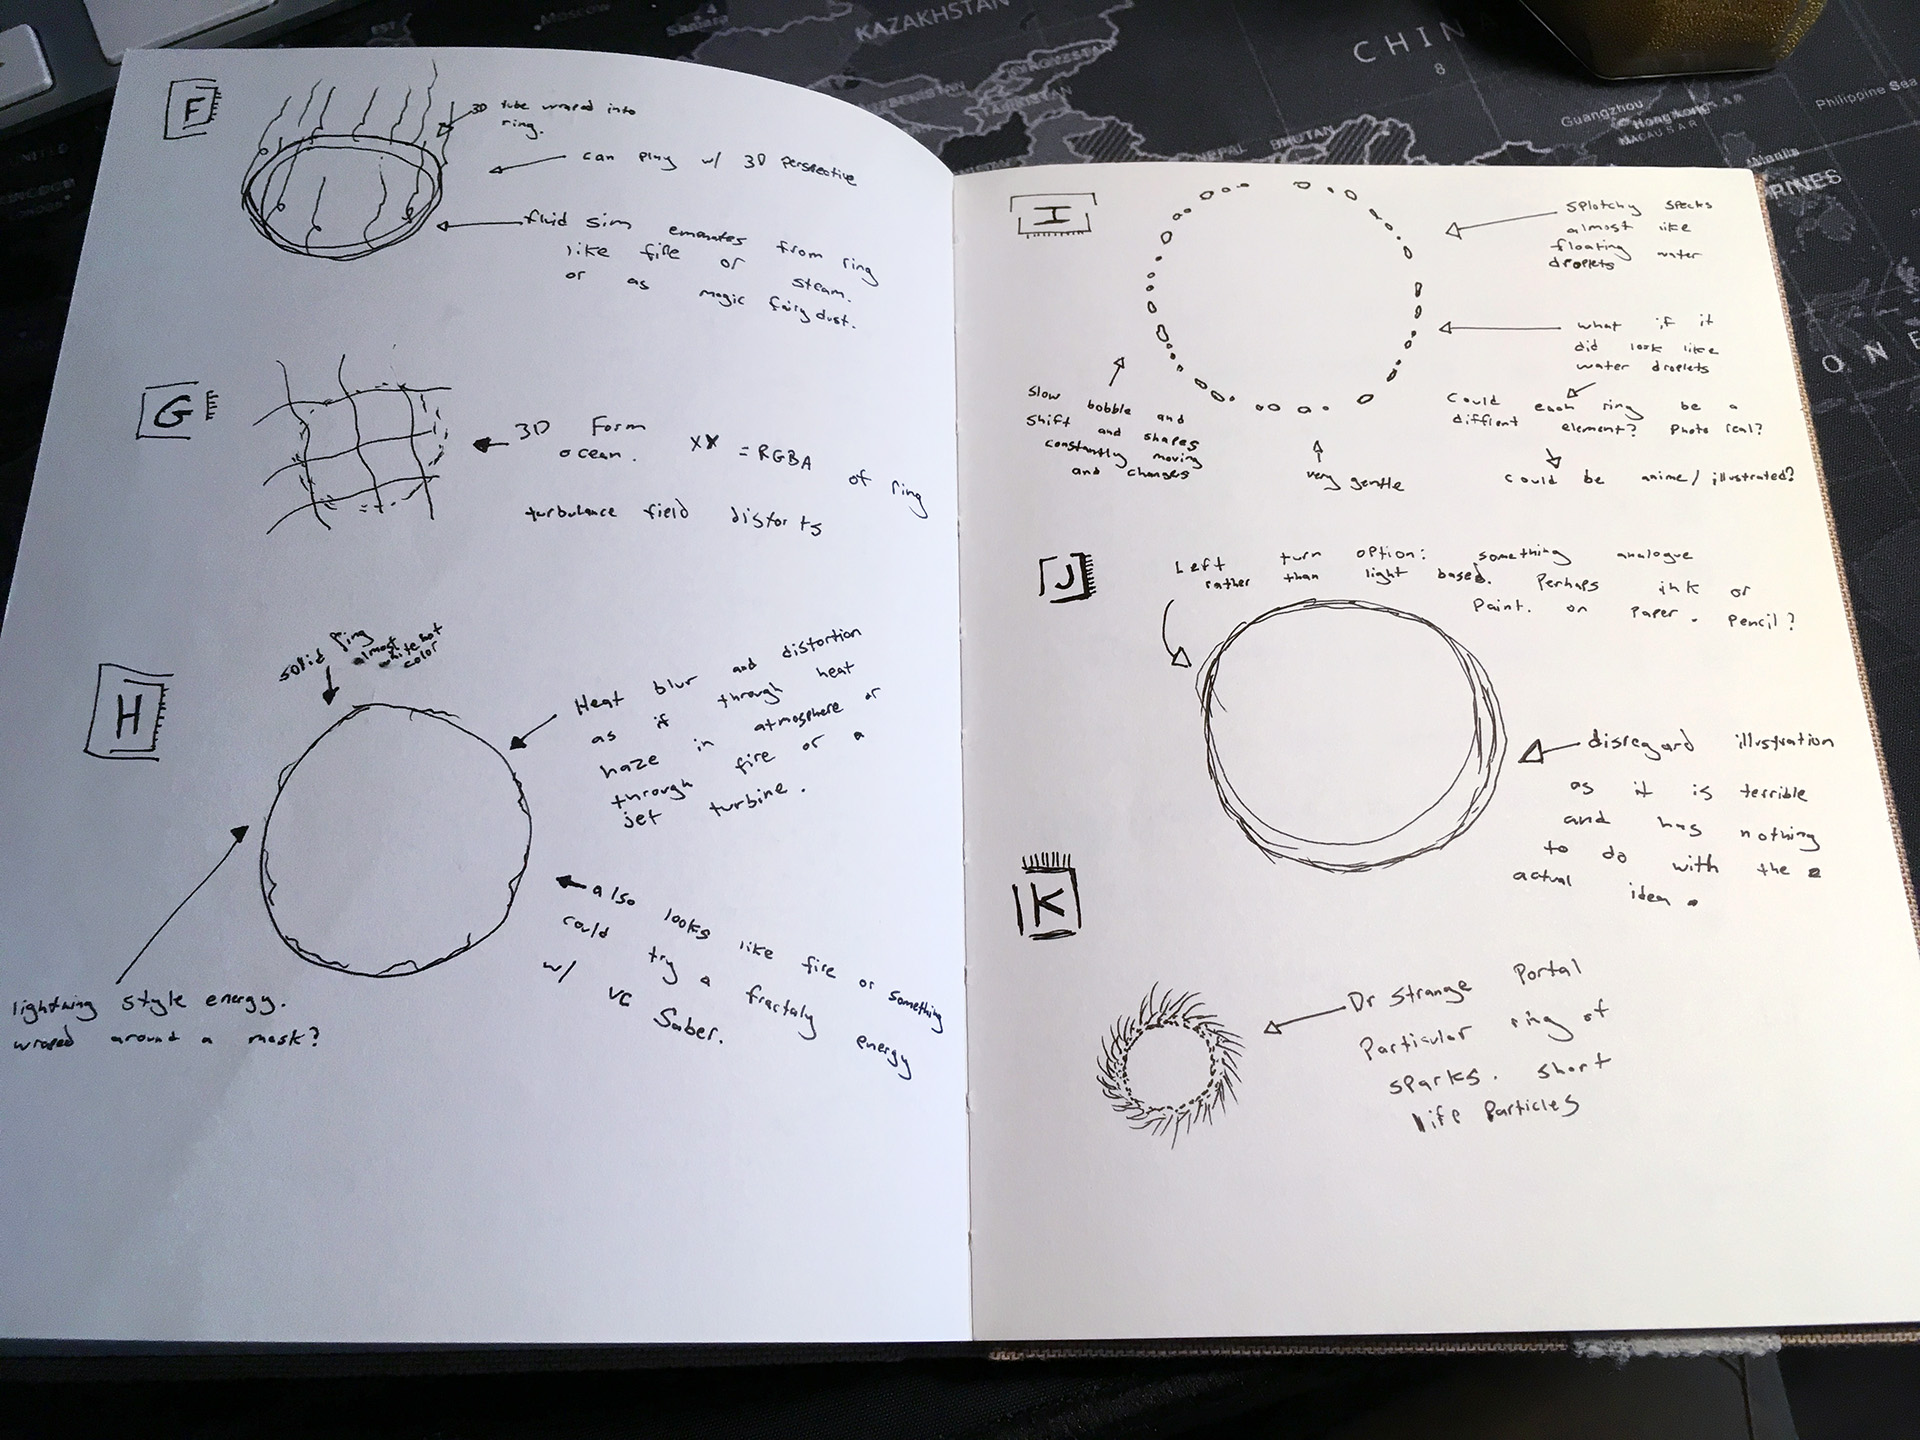 F
3D tube wraped into
ring.
can play w/ 3D perspective
fluid sim emenates from ring
like fire or steam.
or as magic fairy dust.
G
3D Form
ocean.
XX = RGBA of ring
turbulance field distorts
H
solid ring
almost
white hot
color
Heat blur and distortion
as if through heat
haze in atmosphere or
through fire or a
jet turbine.
also looks like fire or something
could try a fractaly energy
w/ VC Saber.
lightning style energy.
wraped around a mask?
I
Splotchy specks
almost like
floating water
droplets
what if it
did look like
water droplets
Could each ring be a
diffirent element? Photo real?
could be anime/illustrated?
Slow bobble and
shift and shapes
constantly moving
and changes
very gentle
J
Left turn option: something analogue
rather than light based. Perhaps ink or
Paint. on Paper. Pencil?
disregard illustration
as it is terrible
and has nothing
to do with the
actual idea.
K
Dr Strange Portal
Particular ring of
sparks. short
life Particles
KAZAKHSTAN
Moscow
Samara
KYRGYZSTAN
UZBEKISTAN
TAJIKISTAN
CHIN
8
NEPAL
BHUTAN
Guangzhou
Hong Kong
MACAU S.A.R
Philippine Sea
Manila
PINES
ONE
UNITED